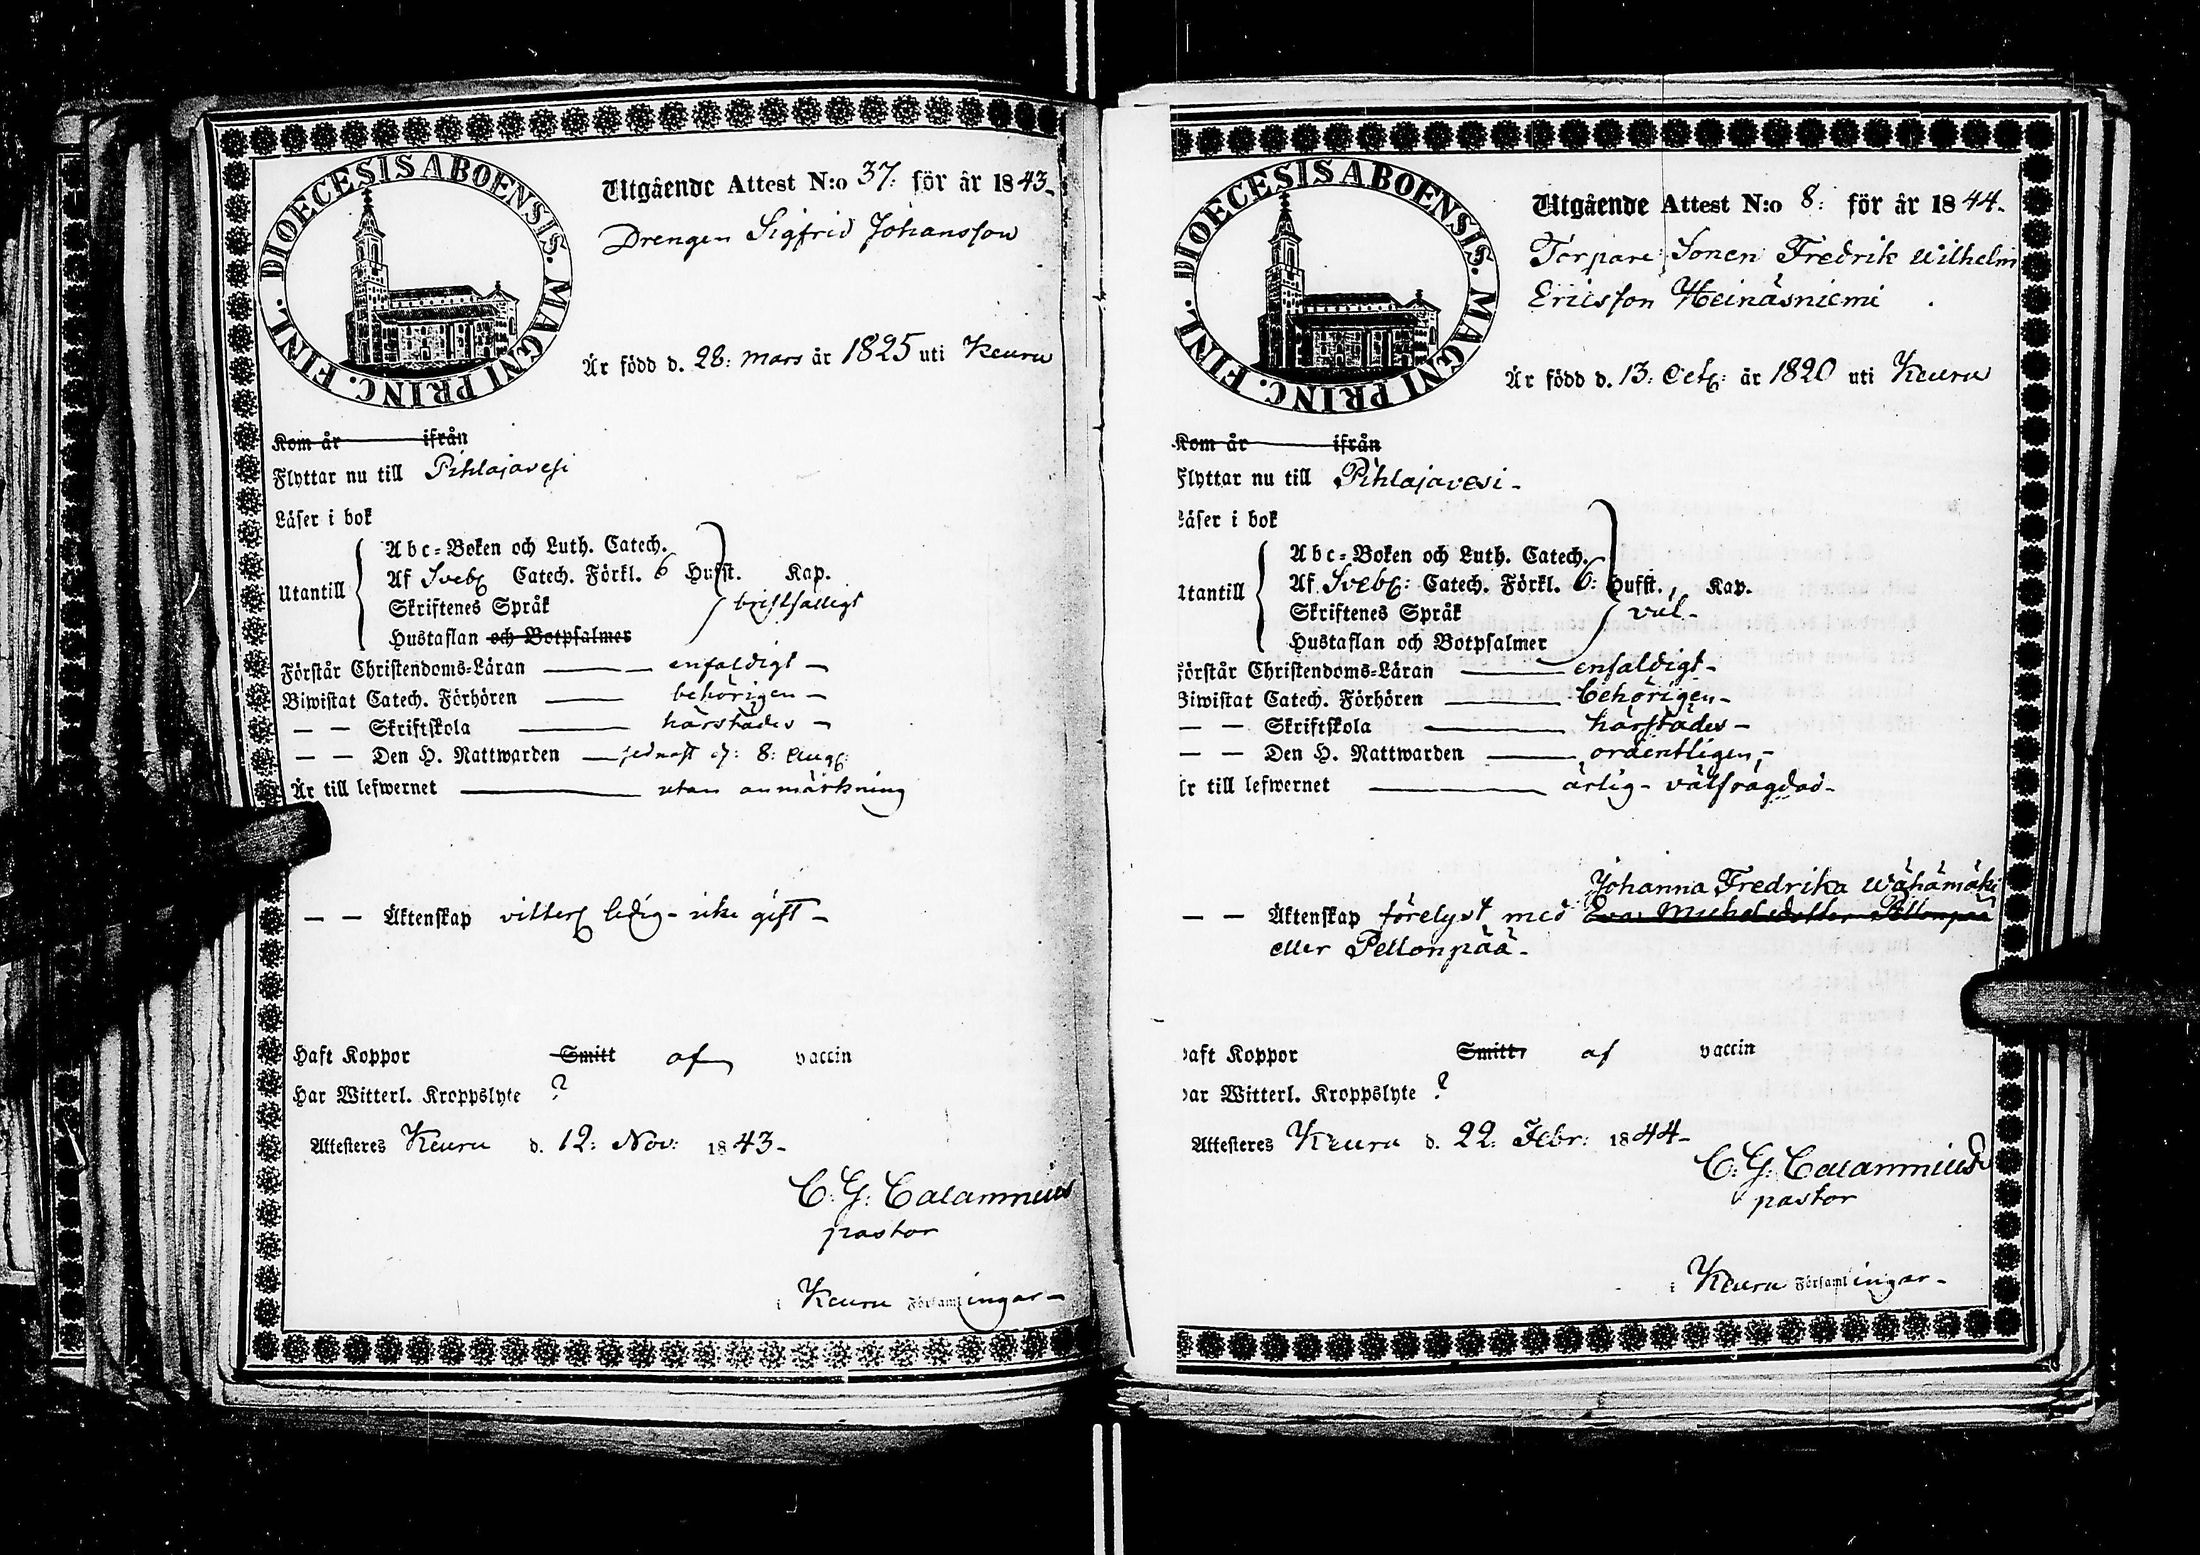 DIOECESIS ABOENSIS. MAGNI PRINC. FINL.
Utgående Attest N:o 37: för år 1843.
Drengen Sigfrid Johansson
Är född d. 28: mars år 1825 uti Keuru
Kom år ifrån
Flyttar nu till Pihlajavesi
Läser i bok
Utantill
Abc-Boken och Luth. Catech.
Af Sveb: Catech. Förkl. 6 Hufst. Kap.
Skriftenes Språk
bristfälligt
Hustaflan och Botpsalmer
Förstår Christendoms-Läran — enfaldigt —
Biwistat Catech. Förhören — behörigen —
— — Skriftskola — härstädes —
— — Den H. Nattwarden — sednast d: 8: Aug:
Är till lefwernet — utan anmärkning
— — Äktenskap vitterl: ledig - icke gift -
Haft Koppor Smitt af vaccin
Har Witterl. Kroppslyte ?
Attesteres Keuru d. 12: Nov: 1843-
C: G: Calamnius
pastor
i Keuru Församlingar-
DIOECESIS ABOENSIS. MAGNI PRINC. FINL.
Utgående Attest N:o 8: för år 1844.
Torpare Sonen Fredrik Wilhelm
Ericsson Heinäsniemi
Är född d. 13: Oct: år 1820 uti Keuru
Kom år ifrån
Flyttar nu till Pihlajavesi-
Läser i bok
Utantill
Abc-Boken och Luth. Catech.
Af Sveb: Catech. Förkl. 6: Hufst., Kap.
Skriftenes Språk
väl-
Hustaflan och Botpsalmer
Förstår Christendoms-Läran — enfaldigt-
Biwistat Catech. Förhören — behörigen-
— — Skriftskola — härstädes-
— — Den H. Nattwarden — ordentligen,-
Är till lefwernet — ärlig- välfrägdad-
Johanna Fredrika Wähämäki
— — Äktenskap förelyst med Eva Michelsdotter Pellonpää
eller Pellonpää-
Haft Koppor Smitt, af vaccin
Har Witterl. Kroppslyte ?
Attesteres Keuru d. 22: Febr: 1844-
C: G: Calamnius
pastor
i Keuru Församlingar-